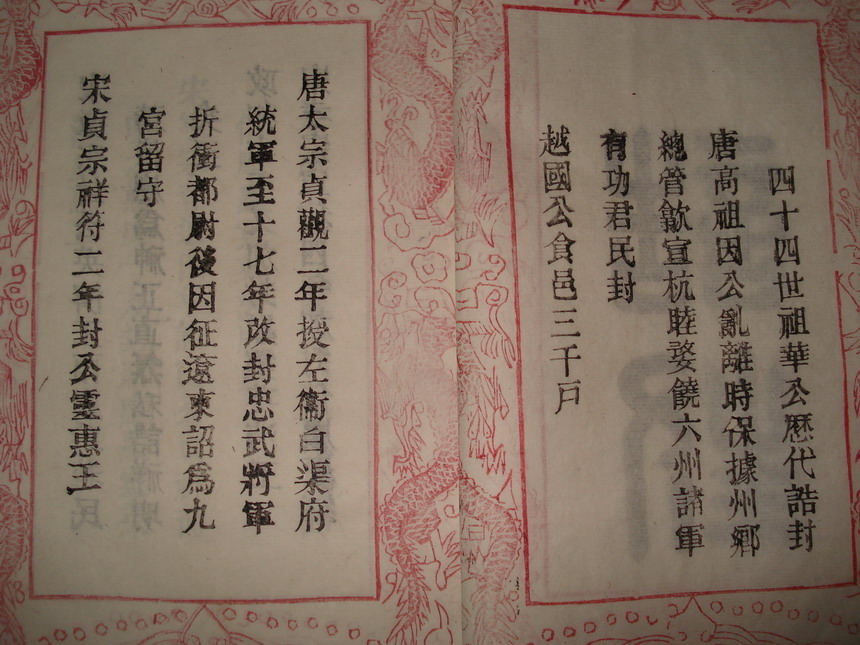 四十四世祖華公歷代誥封
唐高祖因公亂離時保據州鄉
總管歙宣杭睦婺饒六州諸軍
有功君民封
越國公食邑三千戶
唐太宗貞觀二年授左衛白渠府
統軍至十七年改封忠武將軍
折衝都尉後因征遼東詔為九
宮留守
宋貞宗祥符二年封公靈惠王